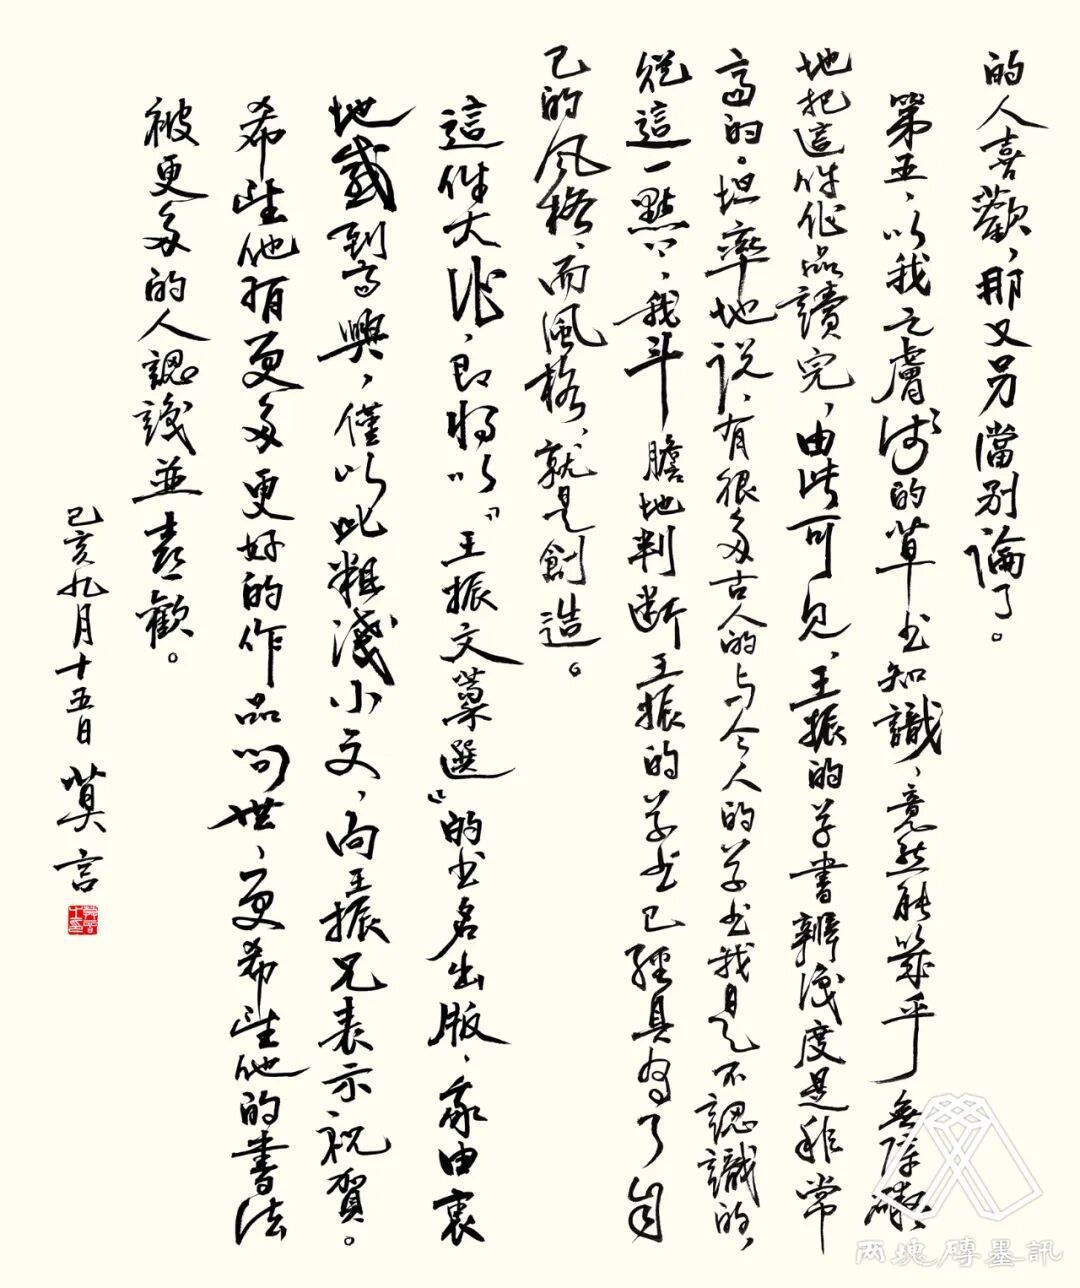 的人喜歡，那又另當别論了。
第五，以我之膚浅的草书知識，竟然能幾乎無障礙
地把這件作品讀完，由此可见，王振的草書辨識度是非常
高的。坦率地说，有很多古人的与今人的草书我是不認識的，
從這一點上，我斗膽地判断王振的草书已經具有了自
己的风格，而風格，就是創造。
這件大作，即将以“王振文藁選”的书名出版，我由衷
地感到高興，僅以此粗淺小文，向王振兄表示祝賀。
希望他有更多更好的作品问世，更希望他的書法
被更多的人認識並喜歡。
己亥九月十五日 莫言
两塊磚墨訊